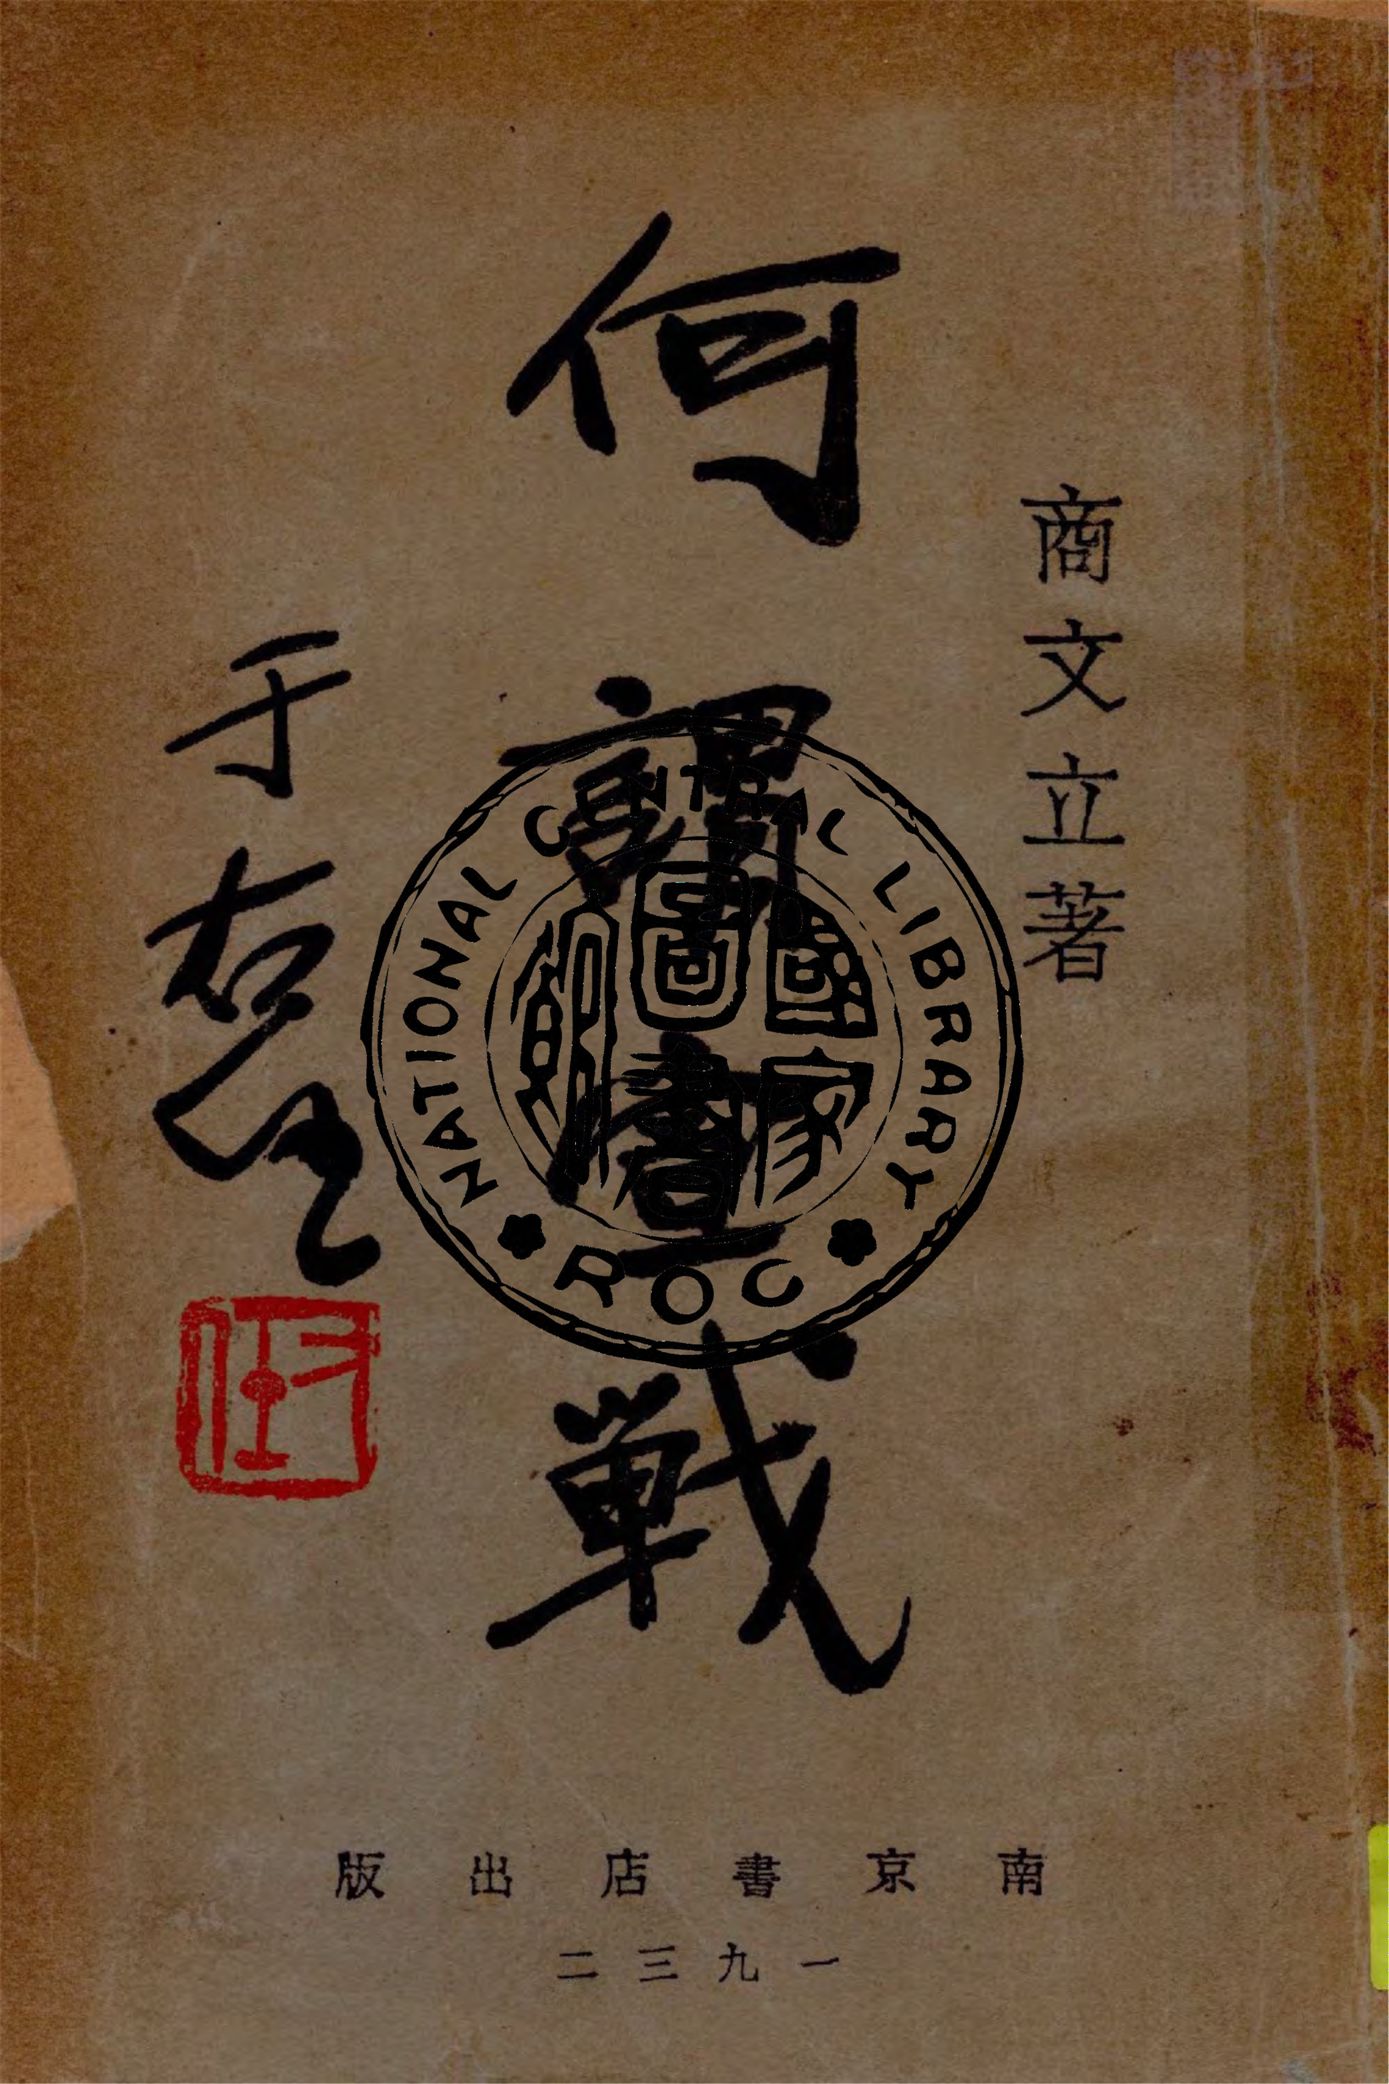 商文立著
何謂宣戰
于右任
右任
NATIONAL CENTRAL LIBRARY
國家
圖書
館
ROC
南京書店出版
一九三二